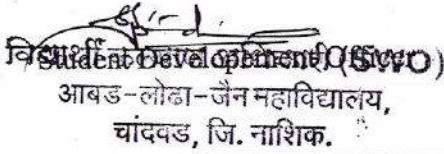 विद्यार्थी
Student Development Officer (SWO)
आबड-लोढा-जैन महाविद्यालय,
चांदवड, जि. नाशिक.